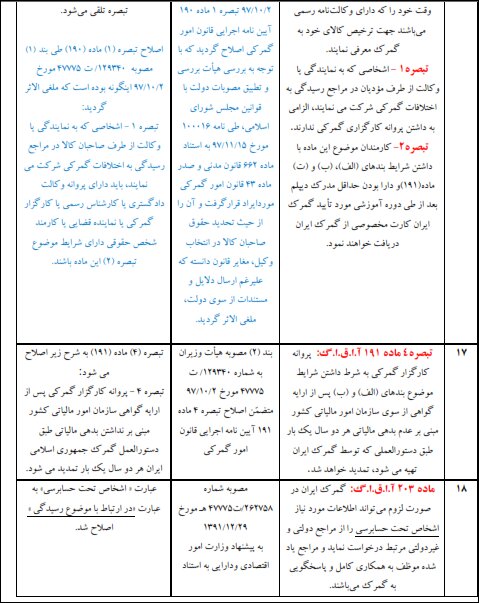 وقت خود را که دارای وکالت‌نامه رسمی
می‌باشند جهت ترخیص کالای خود به
گمرک معرفی نمایند.
تبصره ۱ – اشخاصی که به نمایندگی یا
وکالت از طرف مؤدیان در مراجع رسیدگی به
اختلافات گمرکی شرکت می نمایند، الزامی
به داشتن پروانه کارگزاری گمرکی ندارند.
تبصره ۲– کارمندان موضوع این ماده با
داشتن شرایط بندهای (الف)، (ب) و (ت)
ماده(۱۹۱)و دارا بودن حداقل مدرک دیپلم
بعد از طی دوره آموزشی مورد تأیید گمرک
ایران کارت مخصوصی از گمرک ایران
دریافت خواهند نمود.
۹۷/۱۰/۲ تبصره ۱ ماده ۱۹۰
آیین نامه اجرایی قانون امور
گمرکی اصلاح گردید که با
توجه به بررسی هیأت بررسی
و تطبیق مصوبات دولت با
قوانین مجلس شورای
اسلامی، طی نامه ۱۰۰۰۱۶
مورخ ۹۷/۱۱/۱۵ به استناد
ماده ۶۶۲ قانون مدنی و صدر
ماده ۴۳ قانون امور گمرکی
موردایراد قرارگرفت و آن را
از حیث تحدید حقوق
صاحبان کالا در انتخاب
وکیل، مغایر قانون دانسته که
علیرغم ارسال دلایل و
مستندات از سوی دولت،
ملغی الاثر گردید.
تبصره تلقی می‌شود.
اصلاح تبصره (۱) ماده (۱۹۰) طی بند (۱)
مصوبه ۱۲۹۳۴۰/ ت ۴۷۷۷۵ مورخ
۹۷/۱۰/۲ اینگونه بوده است که ملغی الاثر
گردید:
تبصره ۱ – اشخاصی که به نمایندگی یا
وکالت از طرف صاحبان کالا در مراجع
رسیدگی به اختلافات گمرکی شرکت می
نمایند، باید دارای پروانه وکالت
دادگستری یا کارشناس رسمی یا کارگزار
گمرکی یا نماینده قضایی یا کارمند
شخص حقوقی دارای شرایط موضوع
تبصره (۲) این ماده باشند.
۱۷
تبصره ٤ ماده ۱۹۱ آ.ا.ق.ا.گ: پروانه
کارگزار گمرکی به شرط داشتن شرایط
موضوع بندهای (الف) و (ب) پس از ارایه
گواهی از سوی سازمان امور مالیاتی کشور
مبنی بر عدم بدهی مالیاتی هر دو سال یک بار
طبق دستورالعملی که توسط گمرک ایران
تهیه می شود، تمدید خواهد شد.
بند (۲) مصوبه هیأت وزیران
به شماره ۱۲۹۳۴۰/ ت
۴۷۷۷۵ مورخ ۹۷/۱۰/۲
متضمن اصلاح تبصره ۴ ماده
۱۹۱ آیین نامه اجرایی قانون
امور گمرکی
تبصره (۴) ماده (۱۹۱) به شرح زیر اصلاح
می شود:
تبصره ۴ – پروانه کارگزار گمرکی پس از
ارایه گواهی سازمان امور مالیاتی کشور
مبنی بر نداشتن بدهی مالیاتی طبق
دستورالعمل گمرک جمهوری اسلامی
ایران هر دو سال یک بار تمدید می شود.
۱۸
ماده ۲۰۳ آ.ا.ق.ا.گ: گمرک ایران در
صورت لزوم می‌تواند اطلاعات مورد نیاز
اشخاص تحت حسابرسی را از مراجع دولتی و
غیردولتی مرتبط درخواست نماید و مراجع یاد
شده موظف به همکاری کامل و پاسخگویی
به گمرک می‌باشند.
مصوبه شماره
۲۶۲۷۵۸/ت۴۷۷۷۵ هـ مورخ
۱۳۹۱/۱۲/۲۹
به پیشنهاد وزارت امور
اقتصادی ودارایی به استناد
عبارت « اشخاص تحت حسابرسی» به
عبارت «در ارتباط با موضوع رسیدگی »
اصلاح شد.